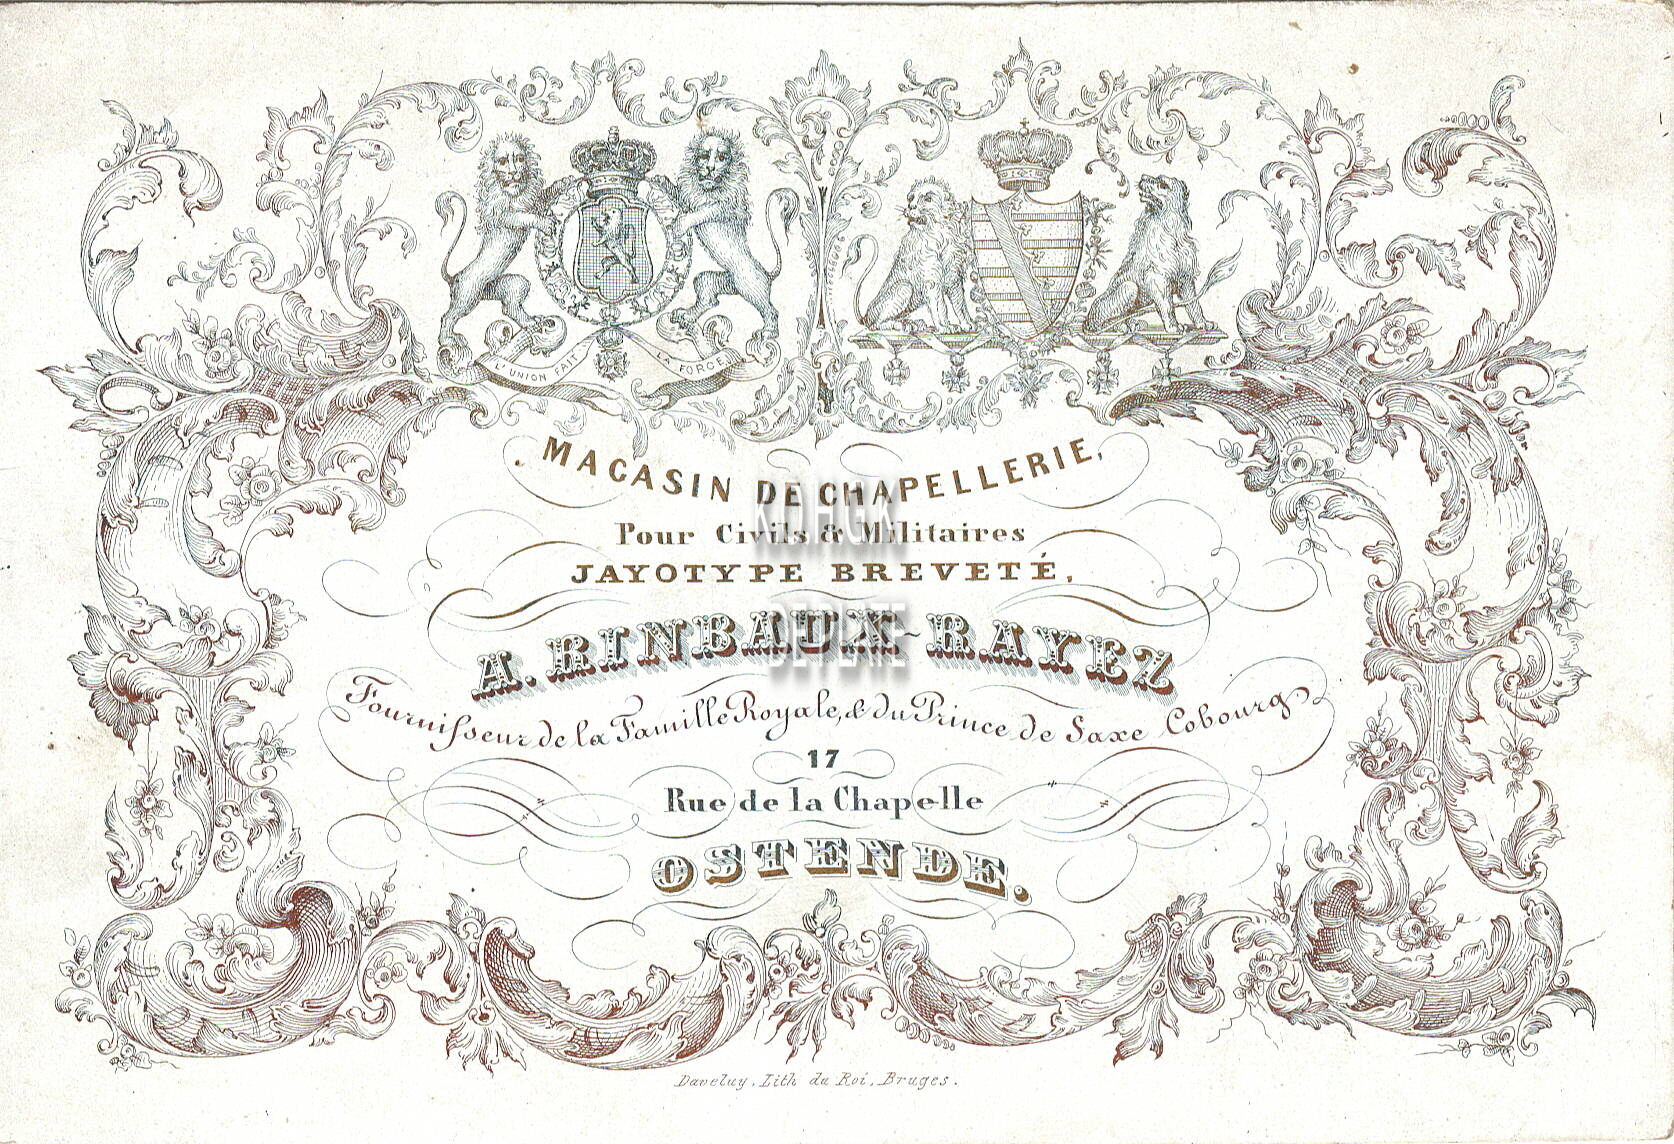 L'UNION FAIT LA FORCE
MAGASIN DE CHAPELLERIE,
Pour Civils & Militaires
JAYOTYPE BREVETÉ,
A. RINBAUX-RAYEZ
Fournisseur de la Famille Royale, & du Prince de Saxe Cobourg
17
Rue de la Chapelle
OSTENDE.
Daveluy, Lith. du Roi, Bruges.
KOHGK
DEPLATE